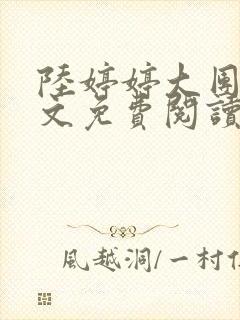 陸婷婷大團
文免費閱讀
風越洞/一村